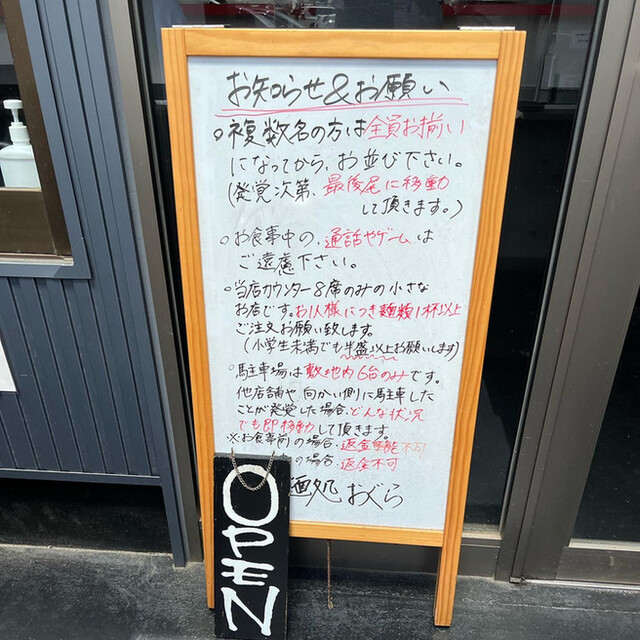 お知らせ&お願い
○複数名の方は全員お揃い
になってから、お並び下さい。
(発覚次第、最後尾に移動
して頂きます。)
○お食事中の、通話やゲームは
ご遠慮下さい。
○当店カウンター8席のみの小さな
お店です。お1人様につき麺類1杯以上
ご注文お願い致します。
(小学生未満でも半盛以上お願いします)
○駐車場は敷地内6台のみです。
他店舗や向かい側に駐車した
ことが発覚した場合、どんな状況
でも即移動して頂きます。
※お食事前の場合、返金
の場合、返金不可
処 おぐら
OPEN